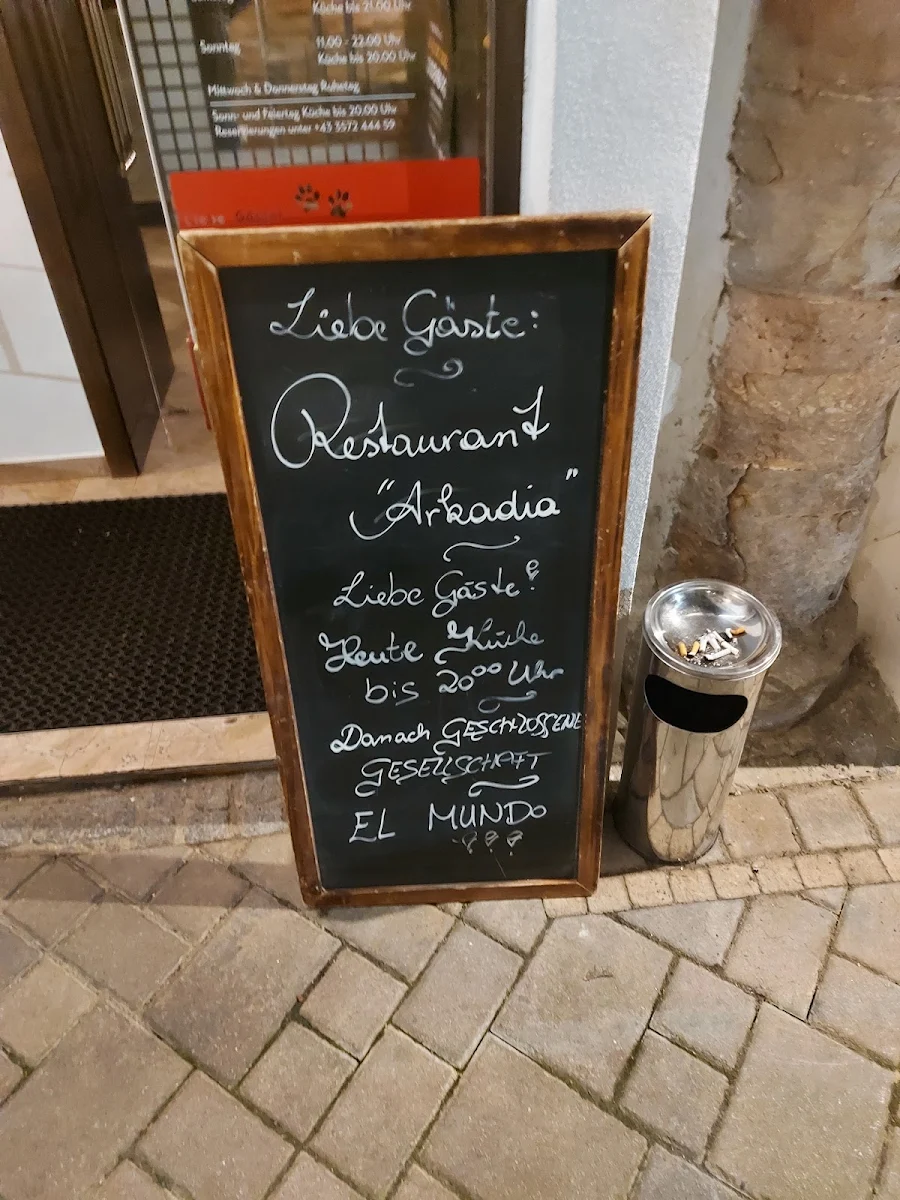 Küche bis 21.00 Uhr
Sonntag 11.00 - 22.00 Uhr
Küche bis 20.00 Uhr
Mittwoch & Donnerstag Ruhetag
Sonn- und Feiertag Küche bis 20.00 Uhr
Reservierungen unter +43 3572 444 59
Liebe Gäste:
Restaurant
"Arkadia"
Liebe Gäste!
Heute Küche
bis 20⁰⁰ Uhr
Danach GESCHLOSSENE
GESELLSCHAFT
EL MUNDO